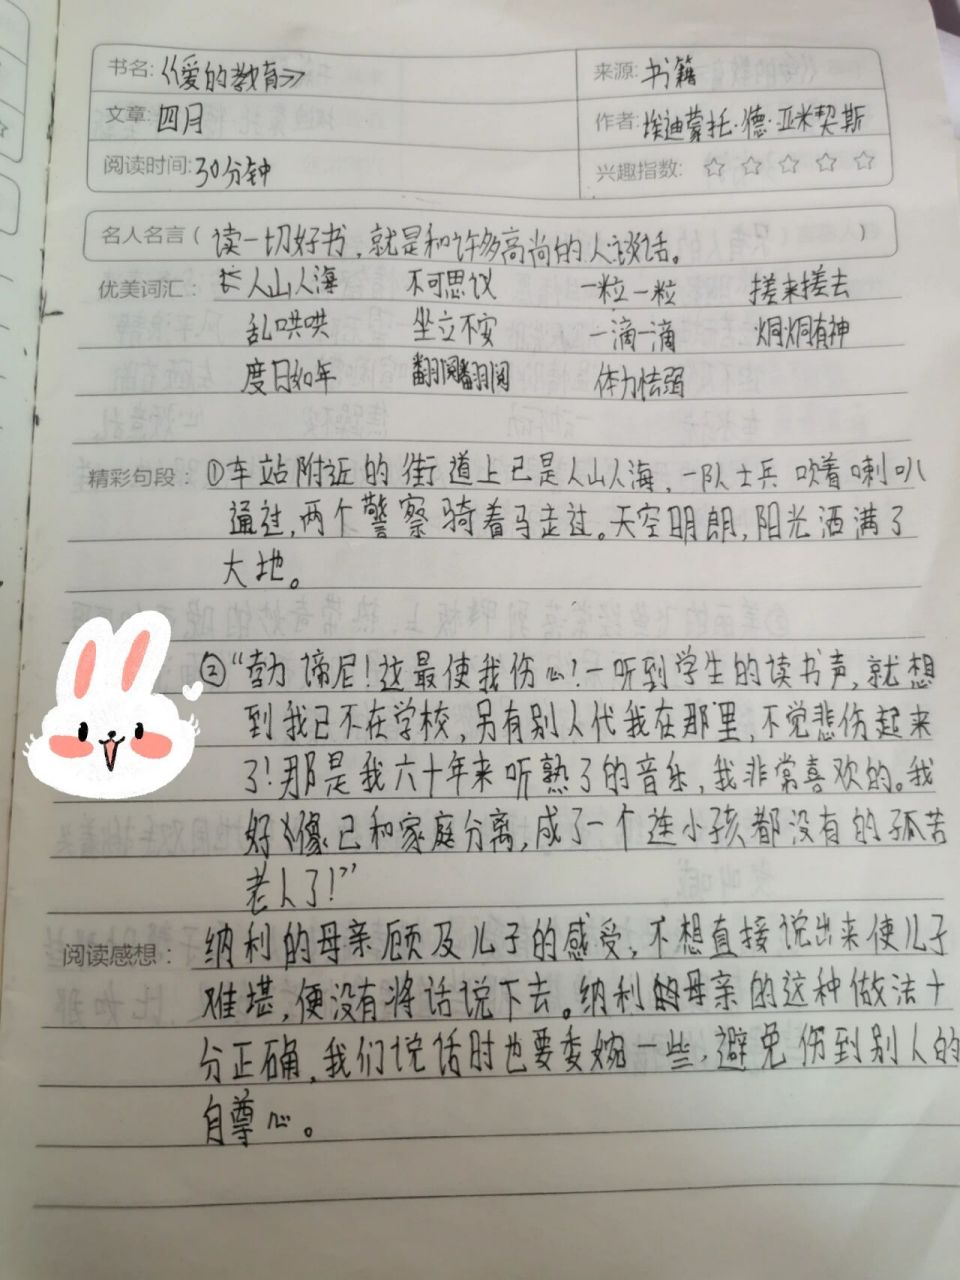 书名:《爱的教育》 来源:书籍
文章:四月 作者:埃迪蒙托·德·亚米契斯
阅读时间:30分钟 兴趣指数: ☆ ☆ ☆ ☆ ☆
名人名言(读一切好书,就是和许多高尚的人谈话。)
优美词汇: 人山人海 不可思议 一粒一粒 搓来搓去
乱哄哄 坐立不安 一滴一滴 炯炯有神
度日如年 翻阅翻阅 体力怯弱
精彩句段: ①车站附近的街道上已是人山人海,一队士兵吹着喇叭
通过,两个警察骑着马走过。天空明朗,阳光洒满了
大地。
②“勃谛尼!这最使我伤心!一听到学生的读书声,就想
到我已不在学校,另有别人代我在那里,不觉悲伤起来
了!那是我六十年来听熟了的音乐,我非常喜欢的。我
好像已和家庭分离,成了一个连小孩都没有的孤苦
老人了!”
阅读感想: 纳利的母亲顾及儿子的感受,不想直接说出来使儿子
难堪,便没有将话说下去。纳利的母亲的这种做法十
分正确,我们说话时也要委婉一些,避免伤到别人的
自尊心。